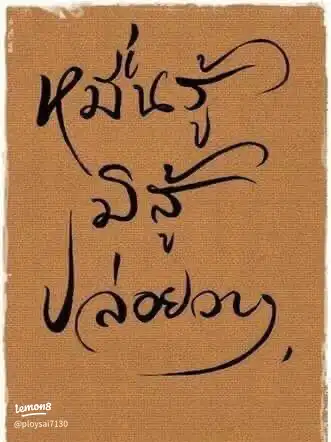 หมื่นรู้
มิสู้
ปล่อยวาง
lemon8
@ploysai7130